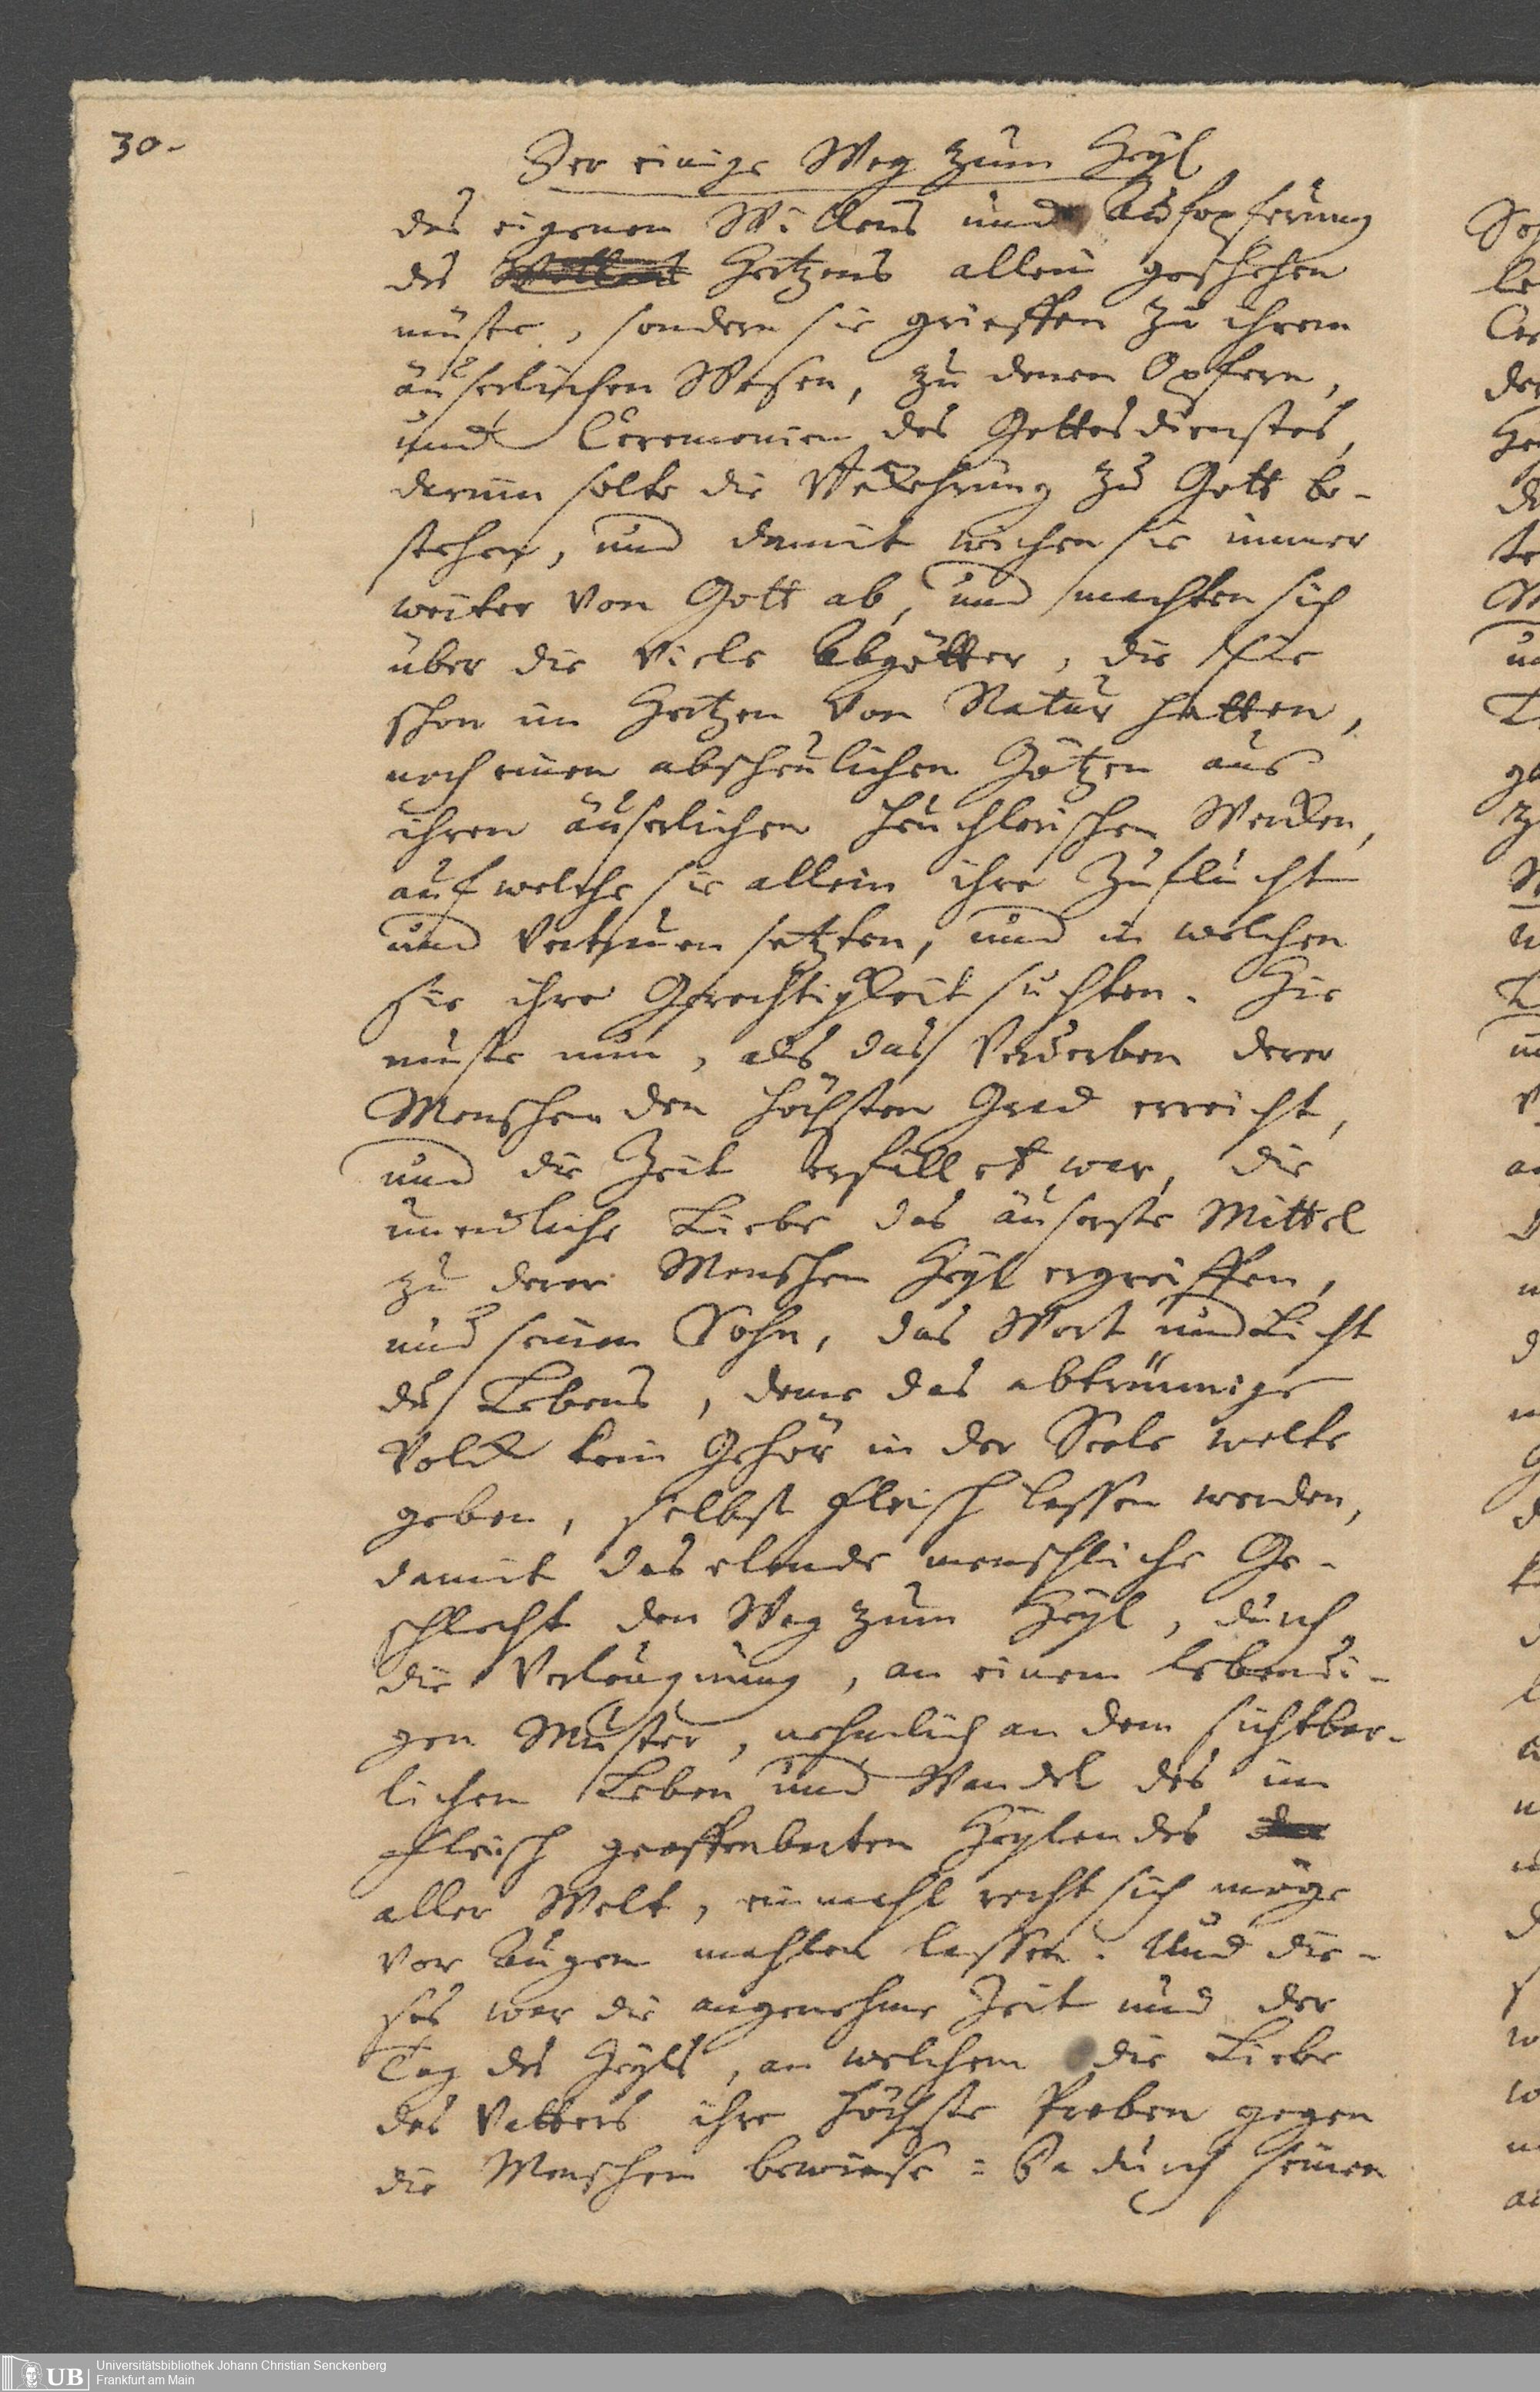 30.
Der einige Weg zum Heyl
des eigenen Willens und Aufopferung
des Willens Hertzens allein geschehen
müste, sondern sie grieffen zu ihrem
äuserlichen Wesen, zu denen Opfern,
und Ceremonien des Gottesdienstes,
darinn solte die Bekehrung zu Gott be-
stehen, und damit wichen sie immer
weiter von Gott ab, und machten sich
über die viele Abgötter, die sie
schon im Hertzen von Natur hatten,
noch einen abscheulichen Götzen aus
ihren äuserlichen heuchlerischen Wercken,
auf welche sie allein ihre Zuflucht
und Vertrauen setzten, und in welchen
sie ihre Gerechtigkeit suchten. Hie
muste nun, als das Verderben derer
Menschen den höchsten Grad erreicht,
und die Zeit erfüllet war, die
unendliche Liebe das äuserste Mittel
zu derer Menschen Heyl ergreiffen,
und seinen Sohn, das Wort und Licht
des Lebens, deme das abtrünnige
Volck kein Gehör in der Seele wolte
geben, selbst Fleisch lassen werden,
damit das elende menschliche Ge-
schlecht den Weg zum Heyl, durch
die Verleugnung, an einem lebendi-
gen Muster, nehmlich an dem sichtbar-
lichen Leben und Wandel des im
Fleisch geoffenbarten Heylandes der
aller Welt, einmahl recht sich möge
vor Augen mahlen lassen. Und die-
ses war die angenehme Zeit und der
Tag des Heyls, an welchem die Liebe
des Vatters ihre höchste Proben gegen
die Menschen bewiese: Da durch seinen
UB
Universitätsbibliothek Johann Christian Senckenberg
Frankfurt am Main